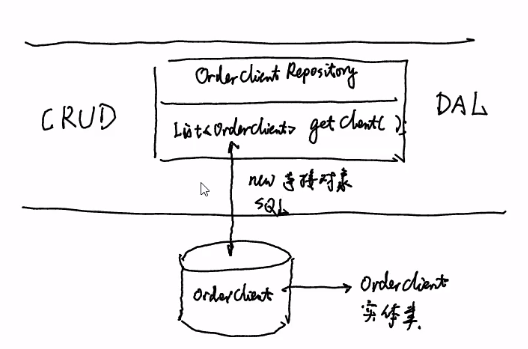 OrderClient Repository
CRUD
List<OrderClient> getClient( );
DAL
new 连接对象
SQL
OrderClient
OrderClient
实体类